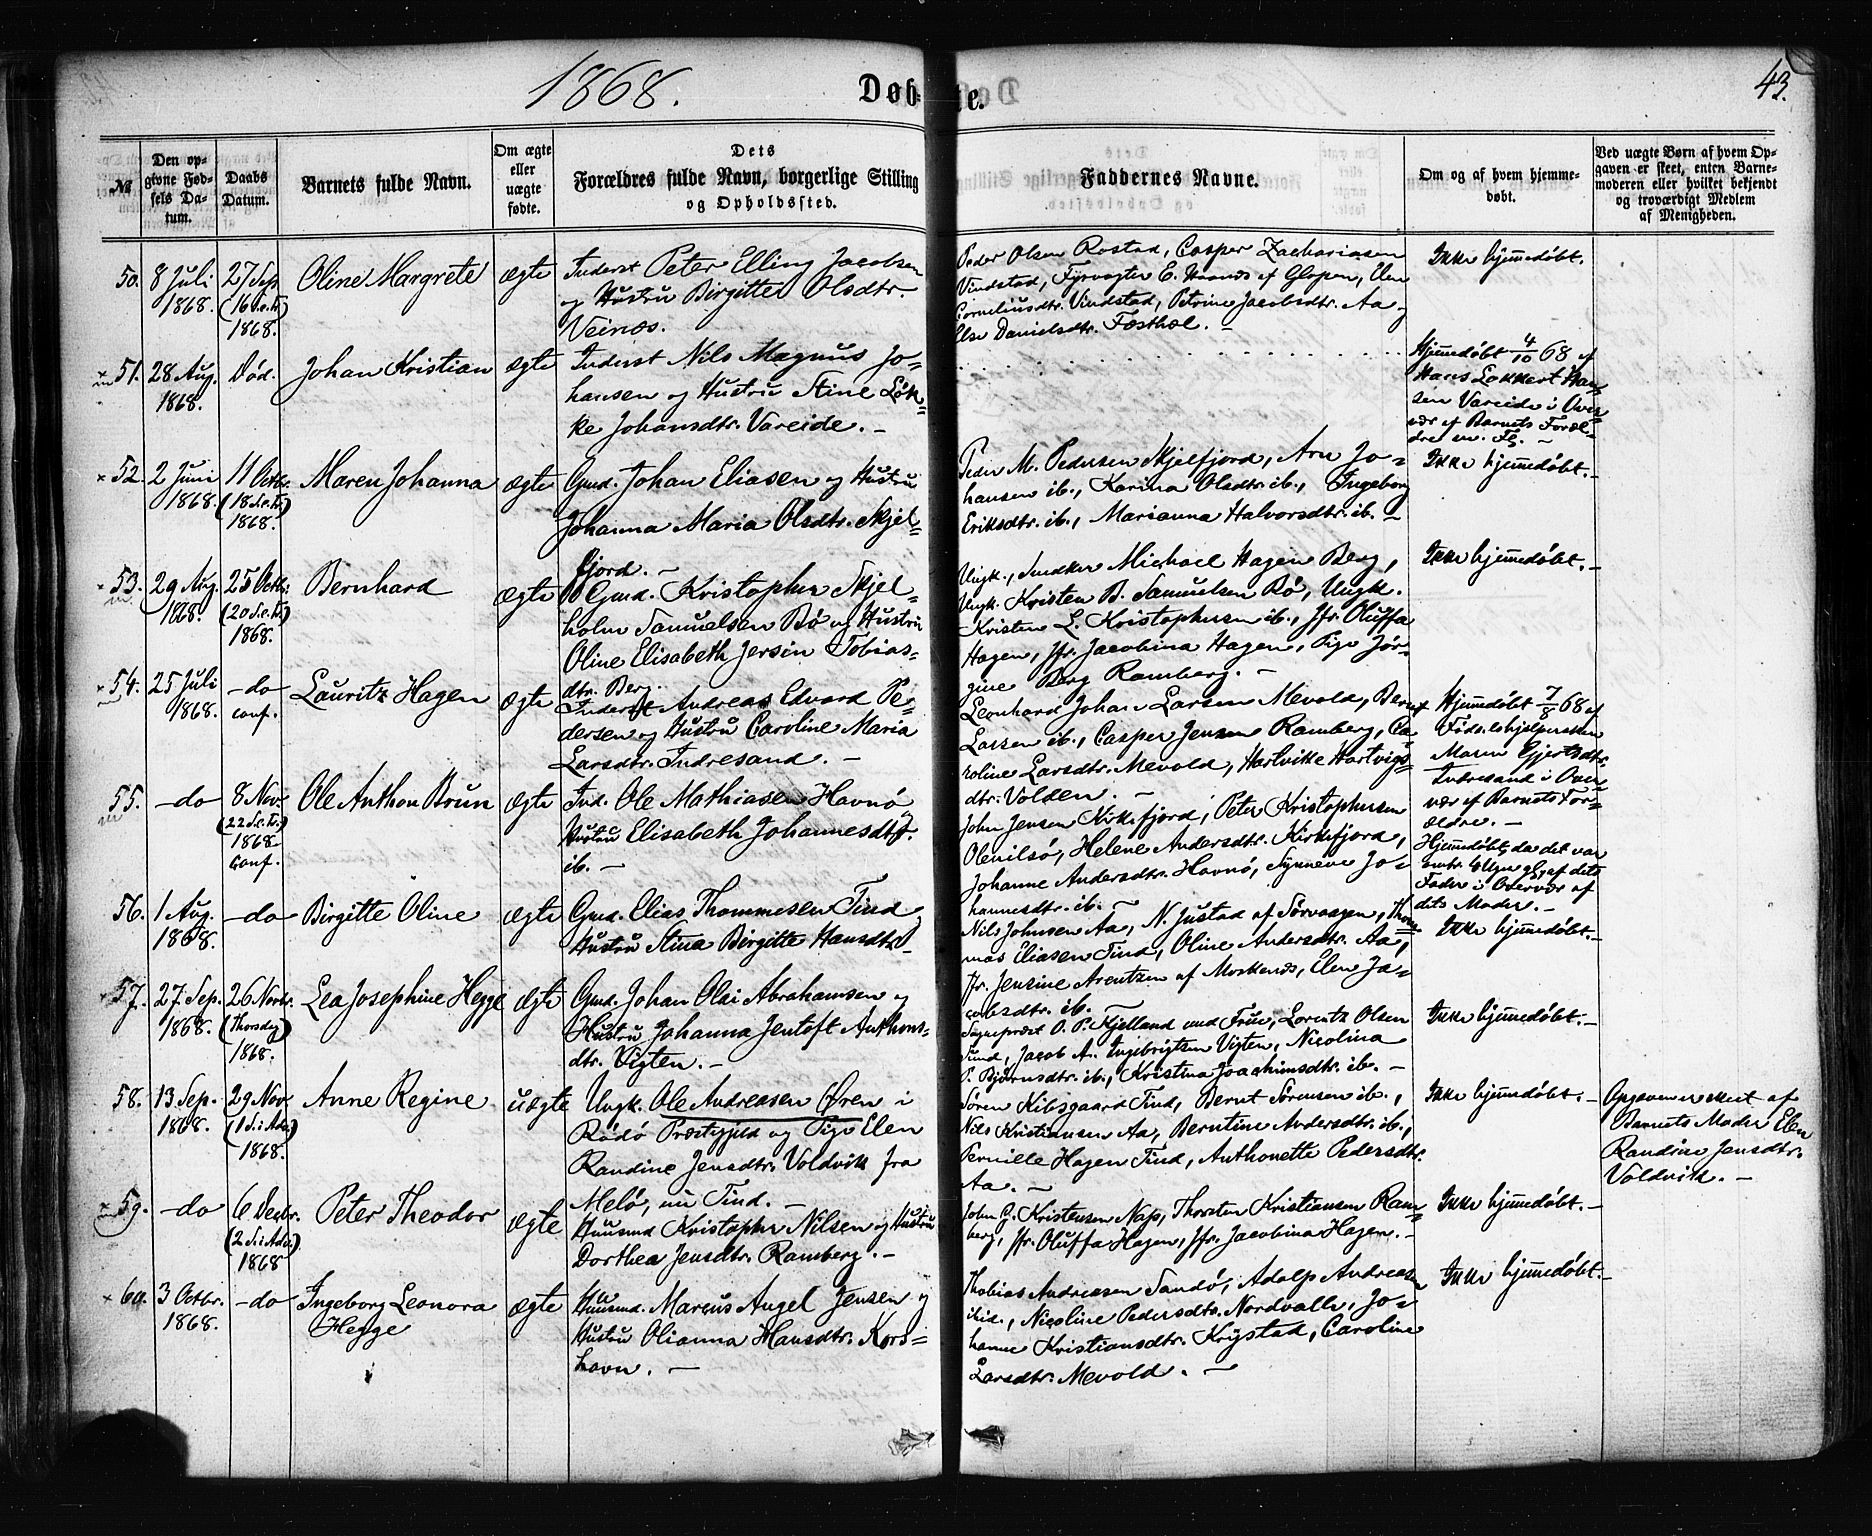 1868.
Døbte.
43.
№
Den opgivne Fødsels Datum.
Daabs Datum.
Barnets fulde Navn.
Om ægte eller uægte fødte.
Dets Forældres fulde Navn, borgerlige Stilling og Opholdssted.
Faddernes Navne.
Om og af hvem hjemmedøbt.
Ved uægte Børn af hvem Opgaven er skeet, enten Barnemoderen eller hvilket bekjendt og troværdigt Medlem af Menigheden.
50. 8 Juli 1868. 27 Sep. (16 S.e.Tr.) 1868. Oline Margrete ægte
Inderst Peter Elling Jacobsen
og Hustru Birgitte Olsdtr.
Veinæs.
Peder Olsen Rostad, Casper Zachariasen
Vindstad, Fyrvogter E. Hannæs af Glopen, Elen
Corneliusdtr. Vindstad, Petrine Jacobsdtr. Aa og
Else Danielsdtr. Fæsthæl. -
Ikke hjemmedøbt.
51. 28 Aug. 1868. Død. Johan Kristian ægte
Inderst Nils Magnus Jo=
hansen og Hustru Stine Løk=
ke Johansdtr. Vareide. -
Hjemmedøbt 4/10 68 af
Hans Lokkert Han=
sen Vareide i Over
vær af Barnets Foræl=
dre m. Fl. -
52. 2 Juni 1868. 11 Octbr. (18 S.e.Tr.) 1868. Maren Johanna ægte
Gmd. Johan Eliasen og Hustru
Johanna Maria Olsdtr. Skjel=
fjord. -
Peder M. Pedersen Skjelfjord, Arn Jo=
hansen ib., Karina Olsdtr. ib., Ingeborg
Eriksdtr. ib., Marianna Halvorsdtr. ib. -
Ikke hjemmedøbt. -
53. 29 Aug. 1868. 25 Octbr. (20 S.e.Tr.) 1868. Bernhard ægte
Gmd. Kristopher Skjel=
holm Samuelsen Bø og Hustru
Oline Elisabeth Jersin Tobias=
dtr. Berg.
Ungk., Snedker Michael Hagen Berg,
Ungk. Kristen B. Samuelsen Bø, Ungk.
Kristen L. Kristophersen ib., Jfr. Oluffa
Hagen, Jfr. Jacobina Hagen, Pige Jør=
gine Berg Ramberg. -
Ikke hjemmedøbt. -
54. 25 Juli 1868. -do conf. Lauritz Hagen ægte
Inderst Andreas Edvard Pe=
dersen og Hustru Caroline Maria
Larsdtr. Indresand. -
Leonhard Johan Larsen Mevold, Bernt
Larsen ib., Casper Jensen Ramberg, Ca=
roline Larsdtr. Mevold, Hartvikke Hartvigs=
dtr. Volden. -
Hjemmedøbt 7/8 68 af
Fødselshjelpersken
Maren Gjertsdtr.
Indresand i Over
vær af Barnets For=
ældre. -
55. -do 8 Nov. (22 S.e.Tr.) 1868. conf. Ole Anthon Brun ægte
Ind. Ole Mathiasen Havnø og
Hustru Elisabeth Johannesdtr.
ib. -
John Jensen Kirkefjord, Peter Kristophersen
Olenilsø, Helene Andersdtr. Kirkefjord,
Johanne Andersdtr. Havnø, Synneve Jo=
hannesdtr. ib. -
Hjemmedøbt, da det var
omtr. 6 Uger gl., af dets
Fader i Overvær af
dets Moder. -
56. 1 Aug. 1868. -do Birgitte Oline ægte
Gmd. Elias Thommesen Tind og
Hustru Stina Birgitte Hansdtr. -
Nils Johnsen Aa, N. Justad af Sørvaagen, Thom=
mas Eliasen Tind, Oline Andersdtr. Aa,
Jfr. Jensine Arentzen af Moskenæs, Elen Ja=
cobsdtr. ib. -
Ikke hjemmedøbt. -
57. 27 Sep. 1868. 26 Novbr. (Thorsdag) 1868. Lea Josephine Hegge ægte
Gmd. Johan Olai Abrahamsen og
Hustru Johanna Jentoft Anthons=
dtr. Vigten. -
Sognepræst O. P. Kjelland med Frue, Lorentz Olsen
Sund, Jacob A. Ingebrigtsen Vigten, Nicolina
P. Bjørnsdtr. ib., Kristina Joachimsdtr. ib. -
Ikke hjemmedøbt. -
58. 13 Sep. 1868. 29 Nov. (1 S. i Adv.) 1868. Anne Regine uægte
Ungk. Ole Andreasen Øren i
Rødø Præstegjeld og Pige Elen
Randine Jensdtr. Voldvik fra
Melø, nu Tind. -
Søren Kibsgaard Tind, Bernt Sørensen ib.,
Nils Kristiansen Aa, Berntine Andersdtr. ib.,
Pernille Hagen Tind, Anthonette Pedersdtr.
Aa. -
Ikke hjemmedøbt. -
Opgaven er skeet af
Barnets Moder Elen
Randine Jensdtr.
Voldvik. -
59. -do 6 Decbr. (2 S. i Adv.) 1868 Peter Theodor ægte
Huusmd. Kristopher Nilsen og Hustru
Dorthea Jensdtr. Ramberg. -
John G. Kristensen Nap, Thorsten Kristiansen Ram=
berg, Jfr. Oluffa Hagen, Jfr. Jacobina Hagen. -
Ikke hjemmedøbt. -
60. 3 Octbr. 1868. -do Ingeborg Leonora Hegge ægte
Huusmd. Marcus Angel Jensen og
Hustru Olianna Hansdtr. Kors=
havn. -
Thobias Andreasen Sandø, Adolf Andreasen
ibid., Nicoline Pedersdtr. Nordvalle, Jo=
hanne Kristiansdtr. Krystad, Caroline
Larsdtr. Mevold. -
Ikke hjemmedøbt. -